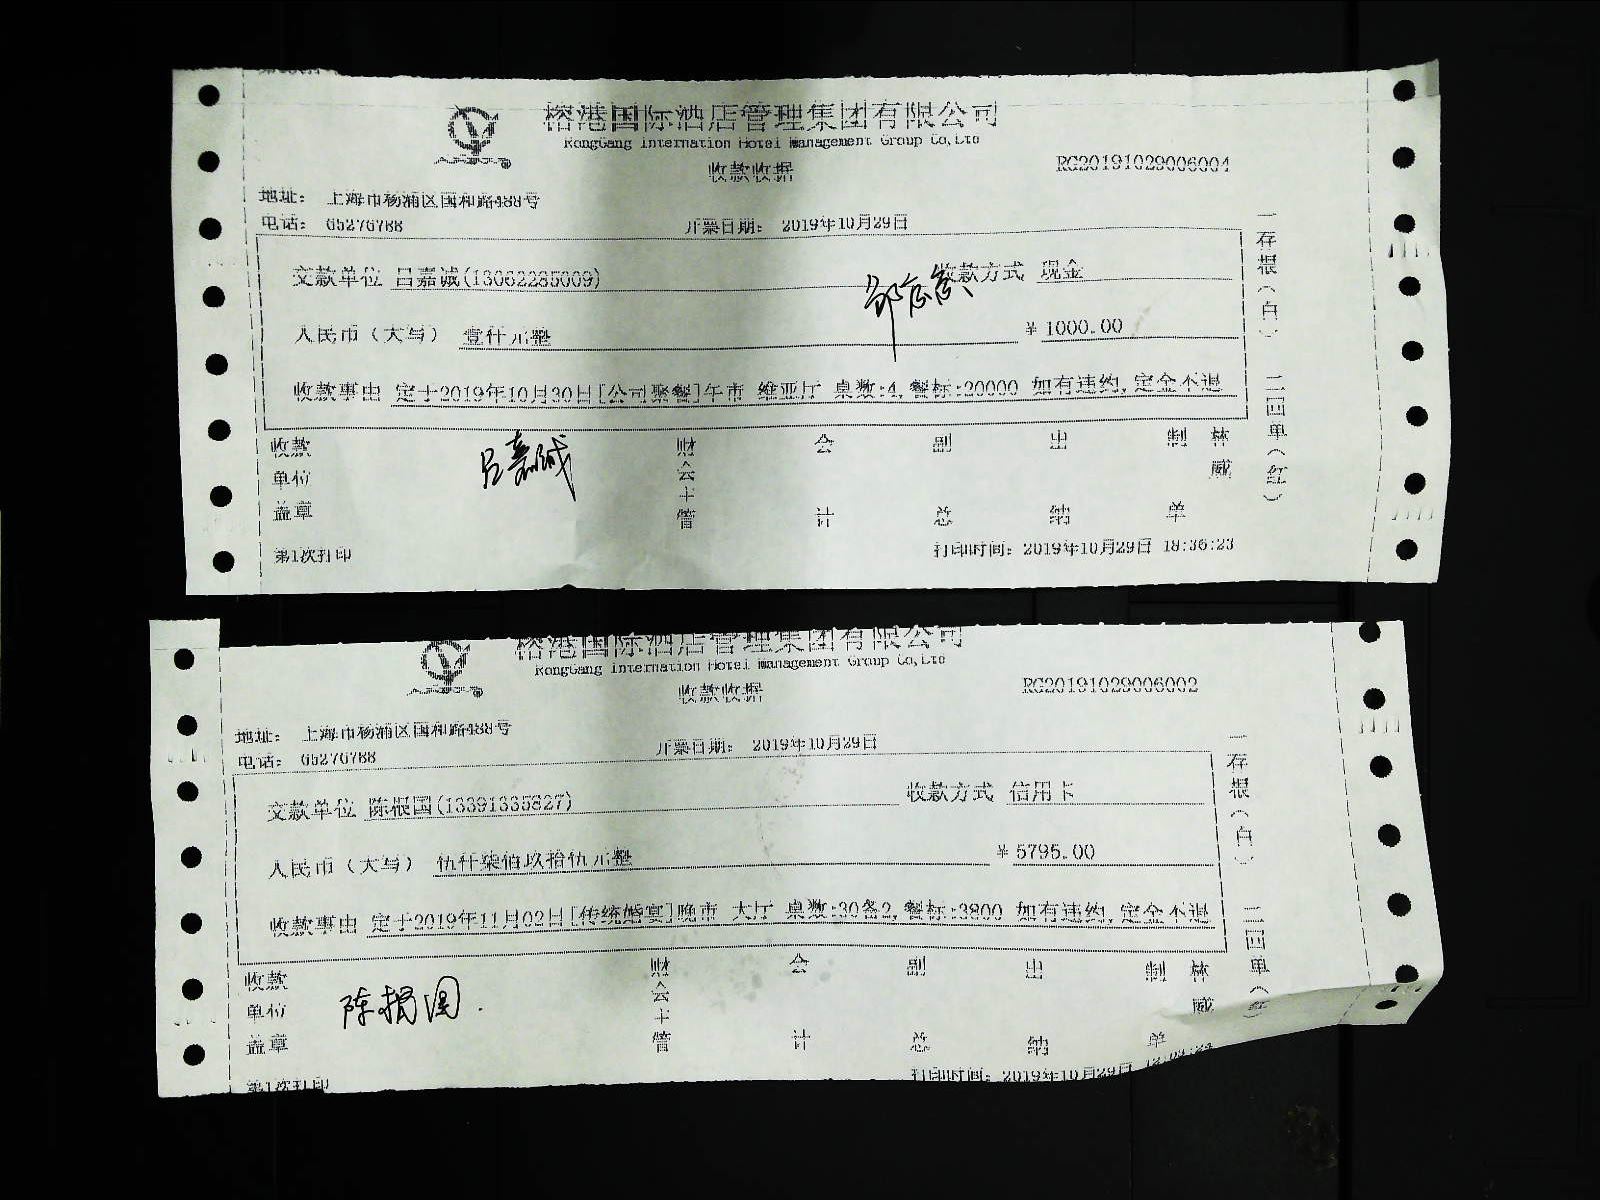 榕港国际酒店管理集团有限公司
RongGang Internation Hotel Management Group Co,Ltd
收款收据
RG20191029006004
地址： 上海市杨浦区国和路488号
电话： 65276788
开票日期： 2019年10月29日
交款单位 吕嘉诚(13062285009)
收款方式 现金
人民币（大写） 壹仟元整
￥1000.00
收款事由 定于2019年10月30日[公司聚餐]午市 维亚厅 桌数:4,餐标:20000 如有违约,定金不退
一存根（白） 二回单（红）
收款单位盖章
吕嘉诚
财会主管
会计
副总
出纳
制单
林威
第1次打印
打印时间：2019年10月29日 18:36:23
榕港国际酒店管理集团有限公司
RongGang Internation Hotel Management Group Co,Ltd
收款收据
RG20191029006002
地址： 上海市杨浦区国和路488号
电话： 65276788
开票日期： 2019年10月29日
交款单位 陈根国(13391335827)
收款方式 信用卡
人民币（大写） 伍仟柒佰玖拾伍元整
￥5795.00
收款事由 定于2019年11月02日[传统婚宴]晚市 大厅 桌数:30备2,餐标:3800 如有违约,定金不退
一存根（白） 二回单（红）
收款单位盖章
陈根国
财会主管
会计
副总
出纳
制单
林威
第1次打印
打印时间：2019年10月29日